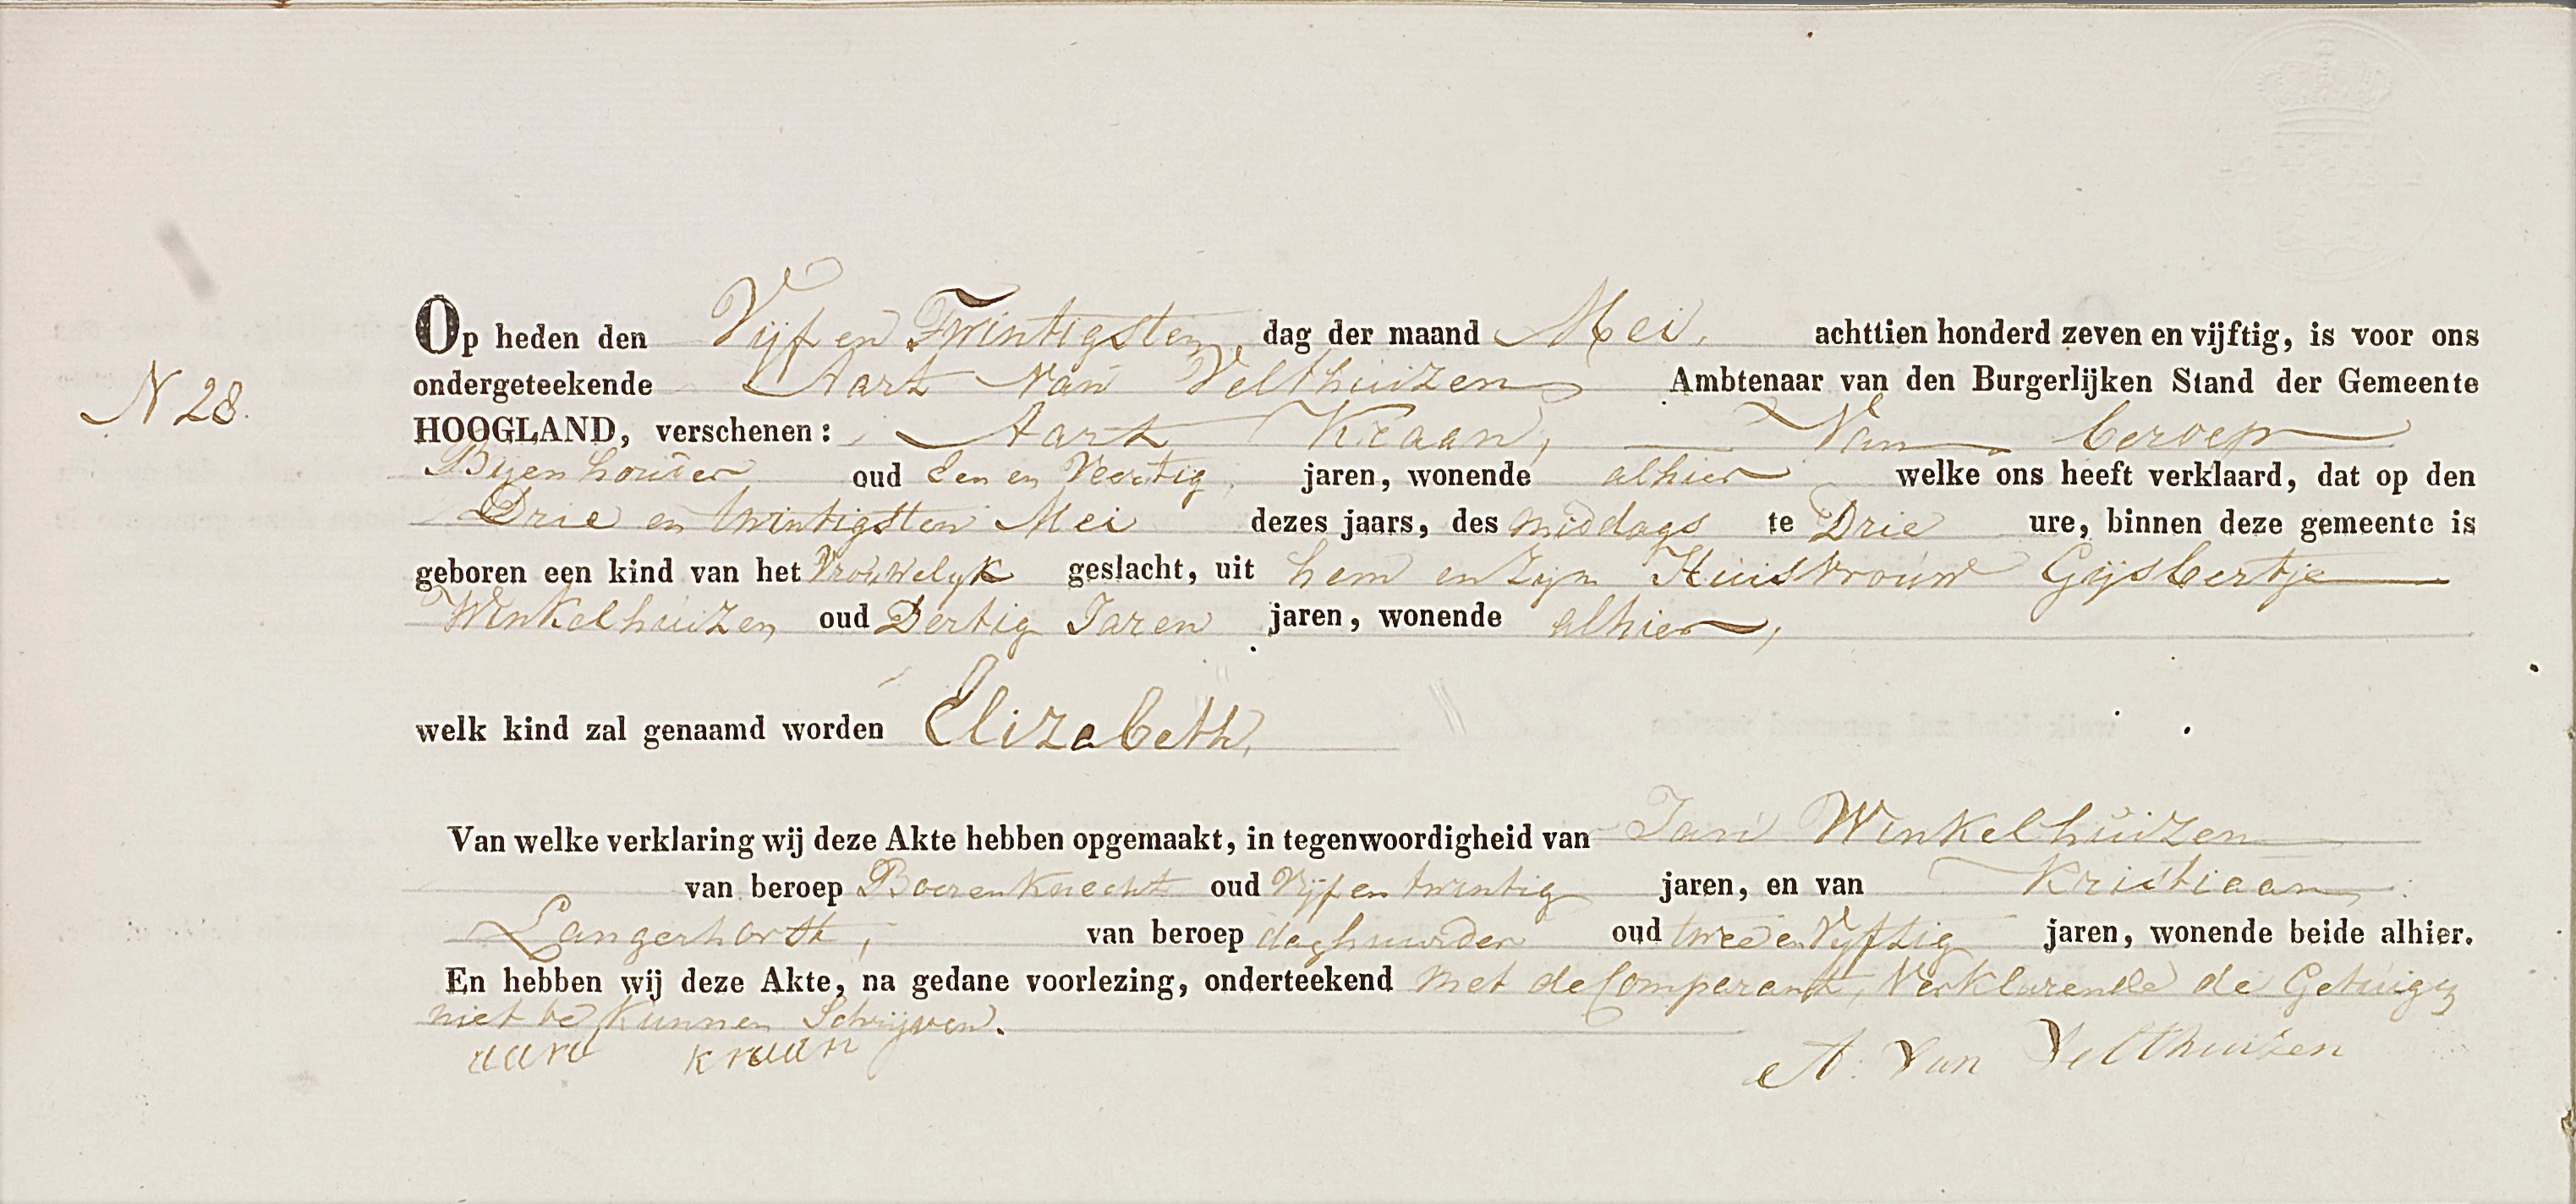 Op heden den Vijf en Twintigsten dag der maand Mei, achttien honderd zeven en vijftig, is voor ons
ondergeteekende Aart van Velthuizen Ambtenaar van den Burgerlijken Stand der Gemeente
N 28.
HOOGLAND, verschenen: Aart Kraan, Van beroep
Bijenhouder oud Een en Veertig, jaren, wonende alhier welke ons heeft verklaard, dat op den
Drie en twintigsten Mei dezes jaars, des middags te Drie ure, binnen deze gemeente is
geboren een kind van het Vrouwelyk geslacht, uit hem en zijn Huisvrouw Gijsbertje
Winkelhuizen oud Dertig Jaren jaren, wonende alhier,
welk kind zal genaamd worden Elizabeth,
Van welke verklaring wij deze Akte hebben opgemaakt, in tegenwoordigheid van Jan Winkelhuizen
van beroep Boerenknecht oud Vijf en twintig jaren, en van Kristiaan
Langerhorst, van beroep daghuurder oud twee en Vyftig jaren, wonende beide alhier.
En hebben wij deze Akte, na gedane voorlezing, onderteekend met de Comparant, Verklarende de Getuigen
niet te kunnen Schrijven.
aard kraan A. Van Velthuizen